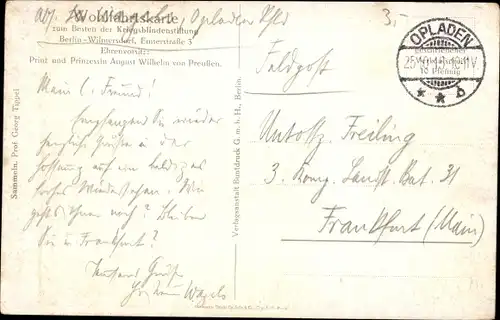 Wohlfahrtskarte
zum Besten der Kriegsblindenstiftung
Berlin-Wilmersdorf, Emserstraße 3
Ehrenvorsitz:
Prinz und Prinzessin August Wilhelm von Preußen.
Opladen
3,-
OPLADEN
10 Pfennig
Feldpost
Mein l. Freund!
Empfangen Sie wieder
herzliche Grüße in der
Hoffnung auf ein baldiges
Wiedersehen. Wie
geht's Ihnen noch? Bleiben
Sie in Frankfurt?
Tausend Grüße
Ihr
Untoffz. Freiling
3. Komp. Landst. Bat. 31
Frankfurt (Main)
Sammeln. Prof. Georg Tippel
Verlagsanstalt Buntdruck G. m. b. H., Berlin.